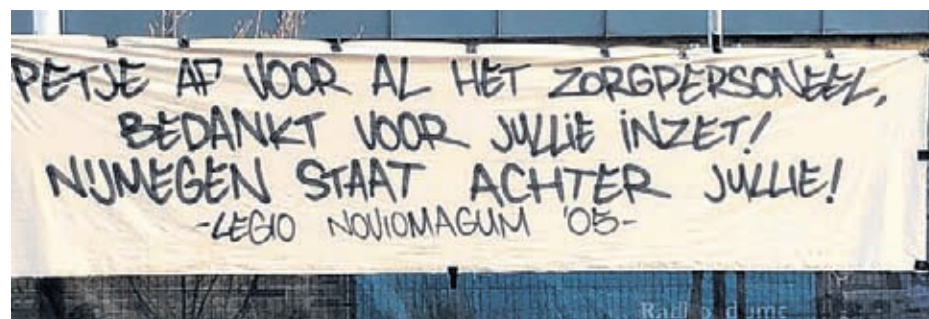 PETJE AF VOOR AL HET ZORGPERSONEEL,
BEDANKT VOOR JULLIE INZET!
NIJMEGEN STAAT ACHTER JULLIE!
-LEGIO NOVIOMAGUM '05-